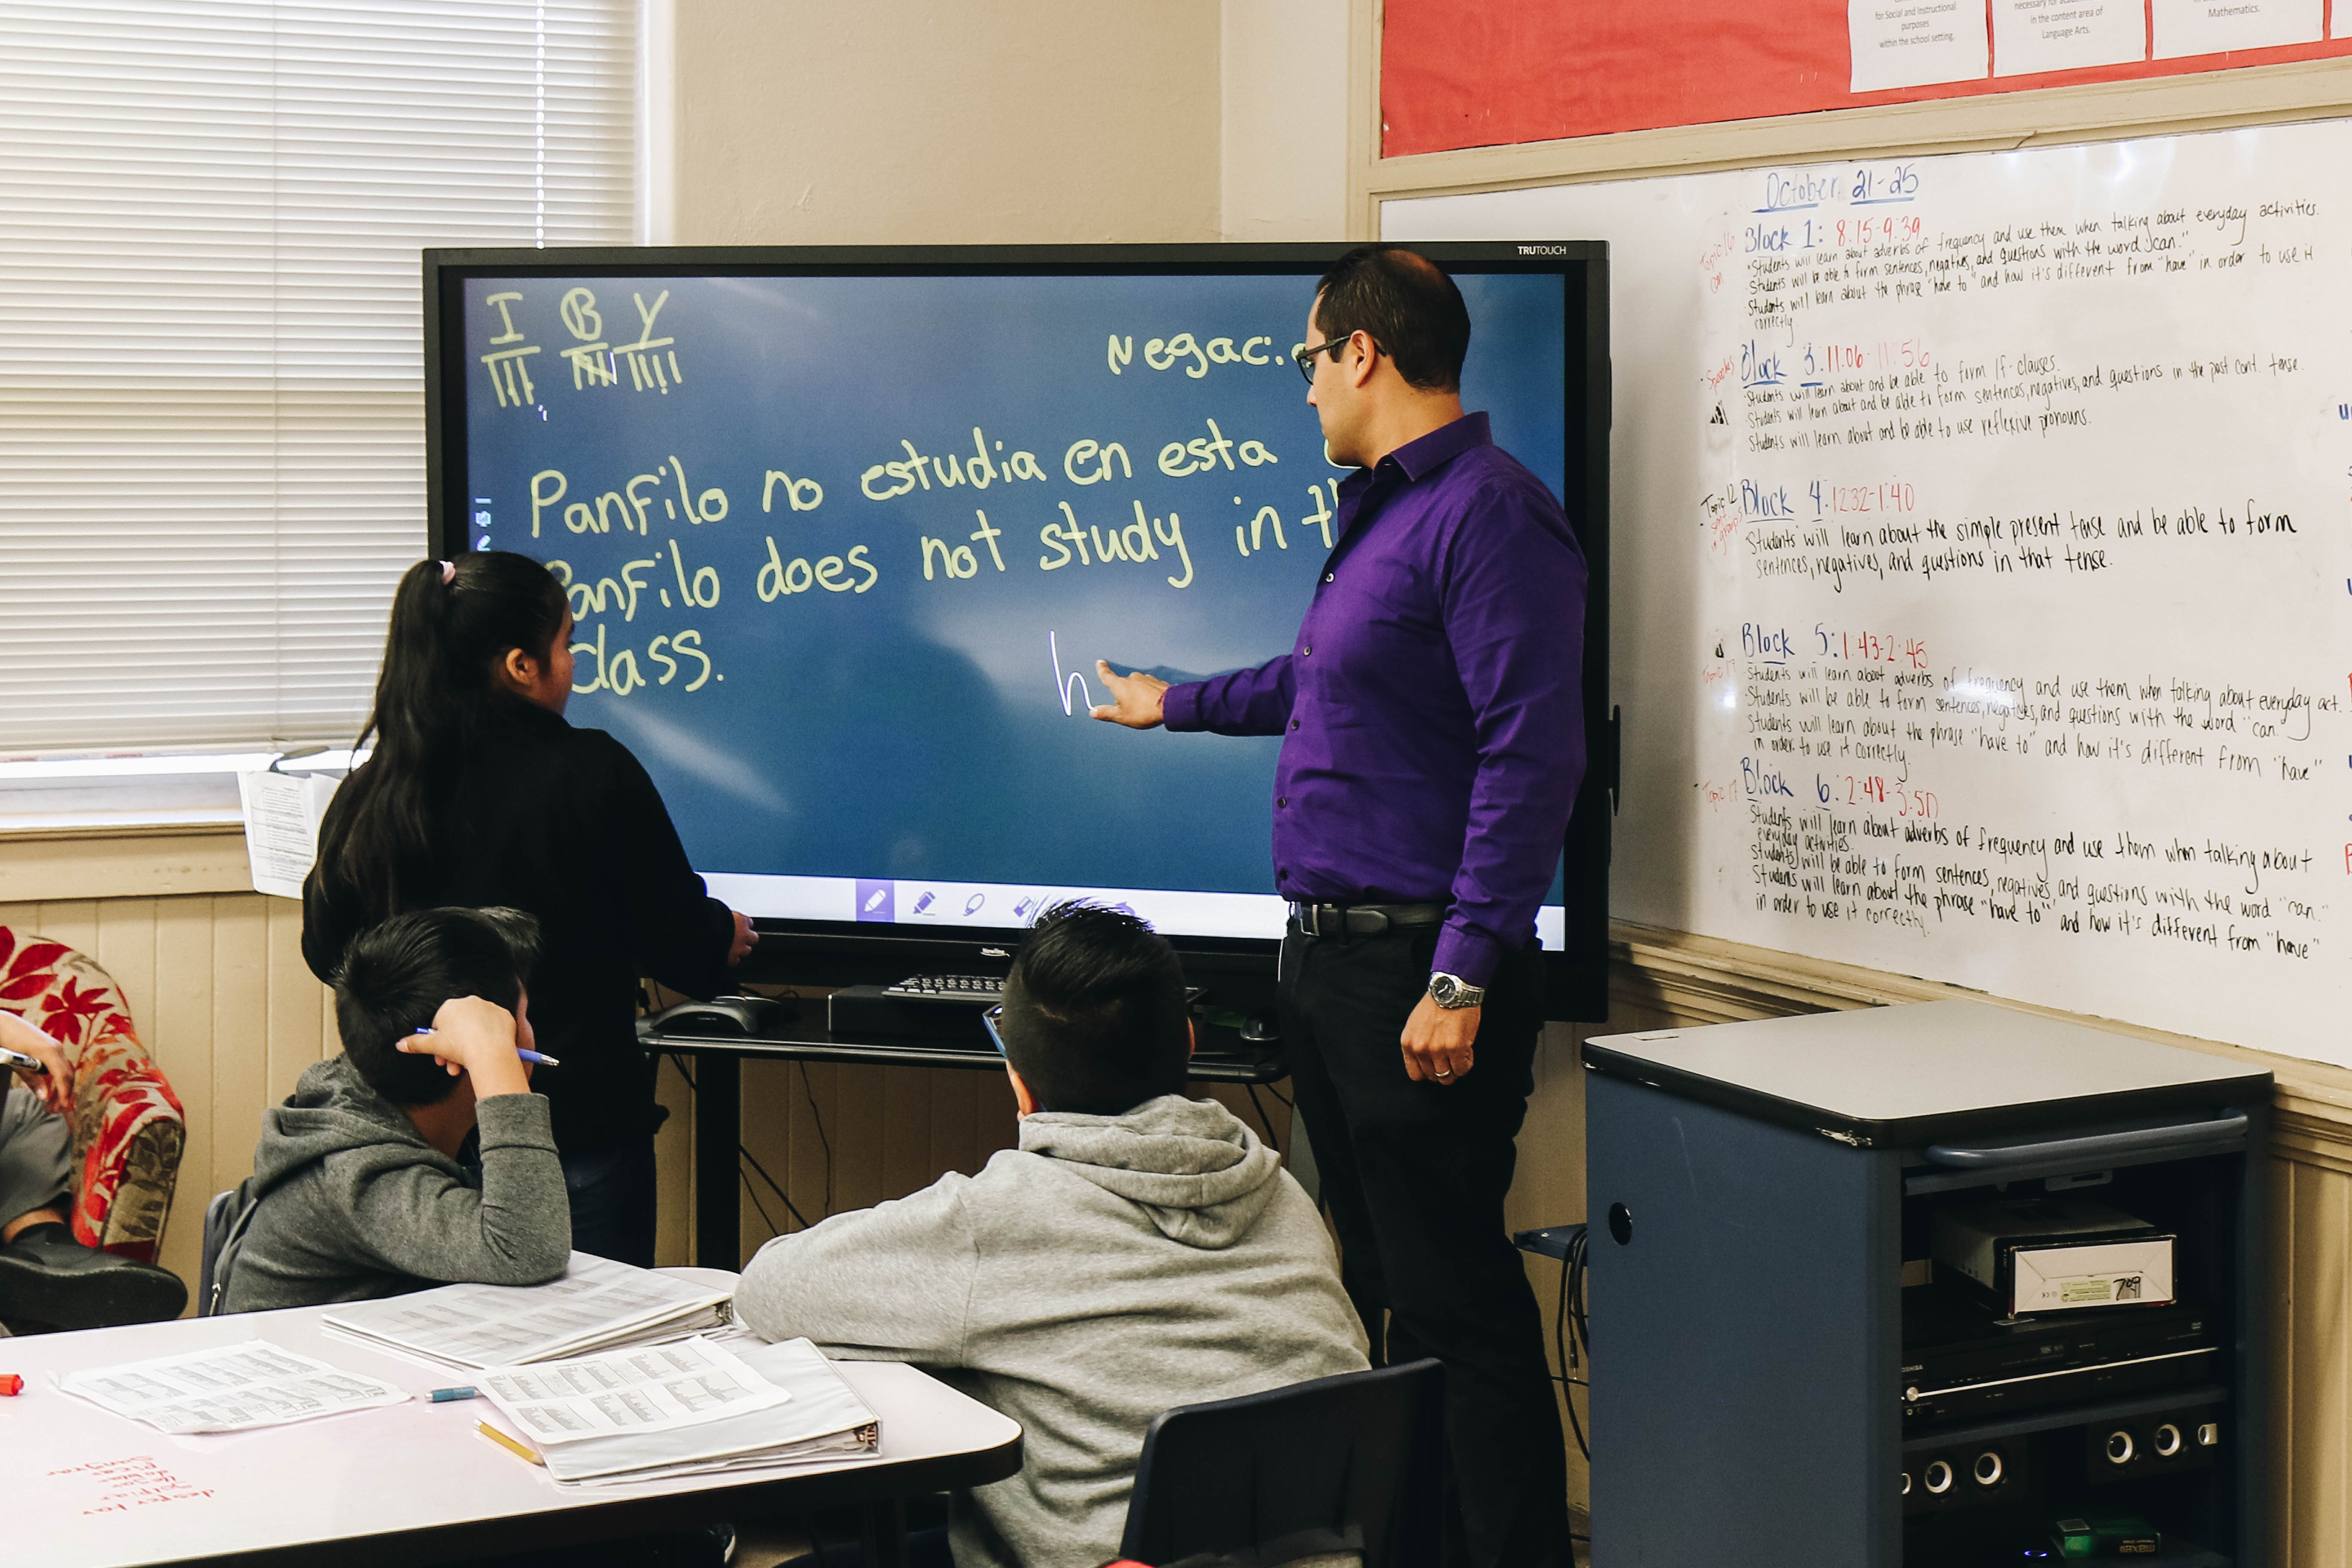 for Social and Instructional
purposes
within the school setting.
in the content area of
Language Arts.
Mathematics.
TRUTOUCH
I B Y
Negac
Panfilo no estudia en esta
Panfilo does not study in th
class.
h
October 21-25
Block 1: 8:15-9:39
Students will learn about adverbs of frequency and use them when talking about everyday activities.
Students will be able to form sentences, negatives, and questions with the word "can."
Students will learn about the phrase "have to" and how it's different from "have" in order to use it
correctly
Block 3: 11:06-11:56
Students will learn about and be able to form If-clauses.
Students will learn about and be able to form sentences, negatives, and questions in the past cont. tense.
Students will learn about and be able to use reflexive pronouns.
Topic 12
Block 4: 12:32-1:40
Students will learn about the simple present tense and be able to form
sentences, negatives, and questions in that tense.
Topic 17
Block 5: 1:43-2:45
Students will learn about adverbs of frequency and use them when talking about everyday act.
Students will be able to form sentences, negatives, and questions with the word "can."
Students will learn about the phrase "have to" and how it's different from "have"
in order to use it correctly.
Topic 17
Block 6: 2:48-3:50
Students will learn about adverbs of frequency and use them when talking about
everyday activities.
Students will be able to form sentences, negatives, and questions with the word "can."
Students will learn about the phrase "have to" and how it's different from "have"
in order to use it correctly.
709
TOSHIBA